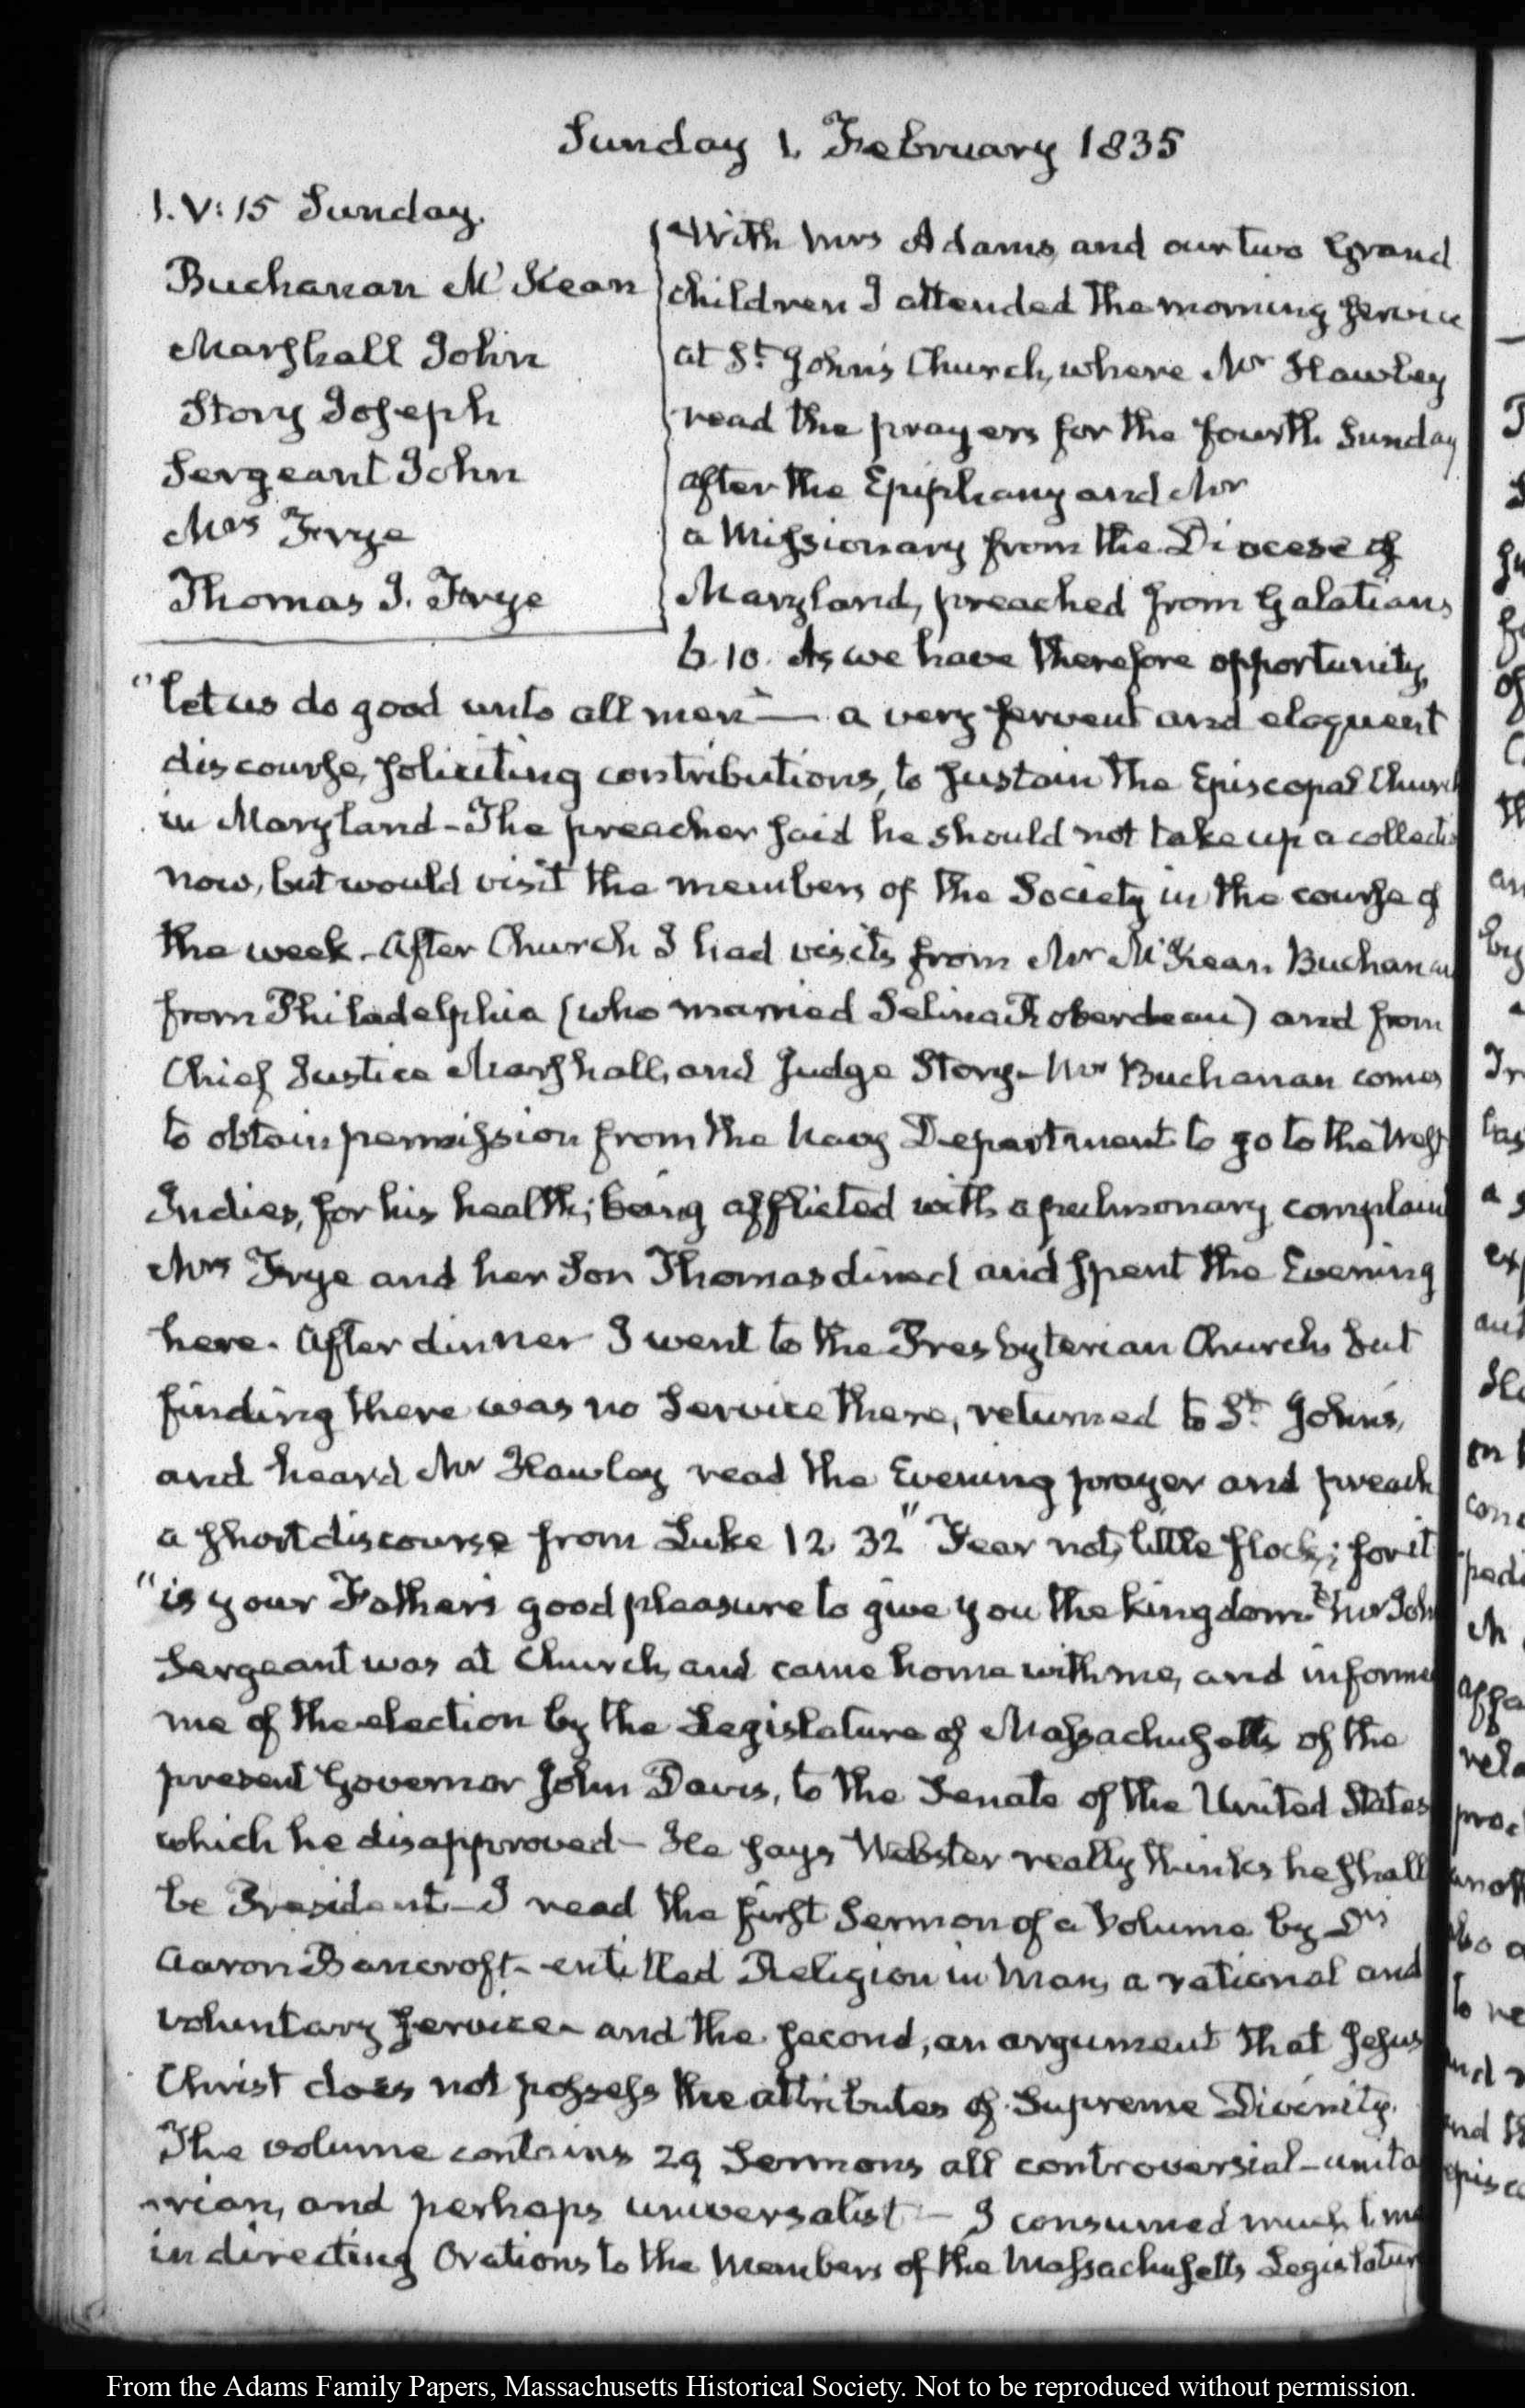 Sunday 1. February 1835
1. V: 15 Sunday.
Buchanan McKean
Marshall John
Story Joseph
Sergeant John
Mrs Frye
Thomas J. Frye
With Mrs Adams, and our two Grand
children I attended the morning service
at St. John's Church, where Mr Hawley
read the prayers for the fourth Sunday
after the Epiphany and Mr
a Missionary from the Diocese of
Maryland, preached from Galatians
6.10. As we have therefore opportunity,
"let us do good unto all men" — a very fervent and eloquent
discourse, soliciting contributions, to sustain the Episcopal Church
in Maryland - The preacher said he should not take up a collectio
now, but would visit the members of the Society in the course of
the week. After Church I had visits from Mr McKean Buchanan
from Philadelphia (who married Selina Roberdeau) and from
Chief Justice Marshall, and Judge Story - Mr Buchanan comes
to obtain permission from the Navy Department to go to the West
Indies, for his health; being afflicted with a pulmonary complaint
Mrs Frye and her Son Thomas dined and spent the Evening
here. After dinner I went to the Presbyterian Church but
finding there was no Service there, returned to St. John's,
and heard Mr Hawley read the Evening prayer and preach
a short discourse from Luke 12. 32 "Fear not, little flock; for it
"is your Father's good pleasure to give you the kingdom." Mr John
Sergeant was at Church, and came home with me, and informed
me of the election by the Legislature of Massachusetts of the
present Governor John Davis, to the Senate of the United States
which he disapproved - He says Webster really thinks he shall
be President - I read the first Sermon of a Volume by Dr
Aaron Bancroft - entitled Religion in Man, a rational and
voluntary service - and the second, an argument that Jesus
Christ does not possess the attributes of Supreme Divinity.
The volume contains 29 Sermons all controversial - unita
rian, and perhaps universalist - I consumed much time
in directing Orations to the Members of the Massachusetts Legislature
From the Adams Family Papers, Massachusetts Historical Society. Not to be reproduced without permission.